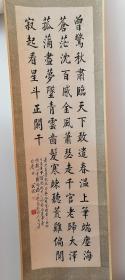 曾驚秋肅臨天下敢遣春溫上筆端塵海
蒼茫沈百感金風蕭瑟走千官老歸大澤
菰蒲盡夢墜青雲齒髮寒竦聽荒雞偏闃
寂起看星斗正闌干